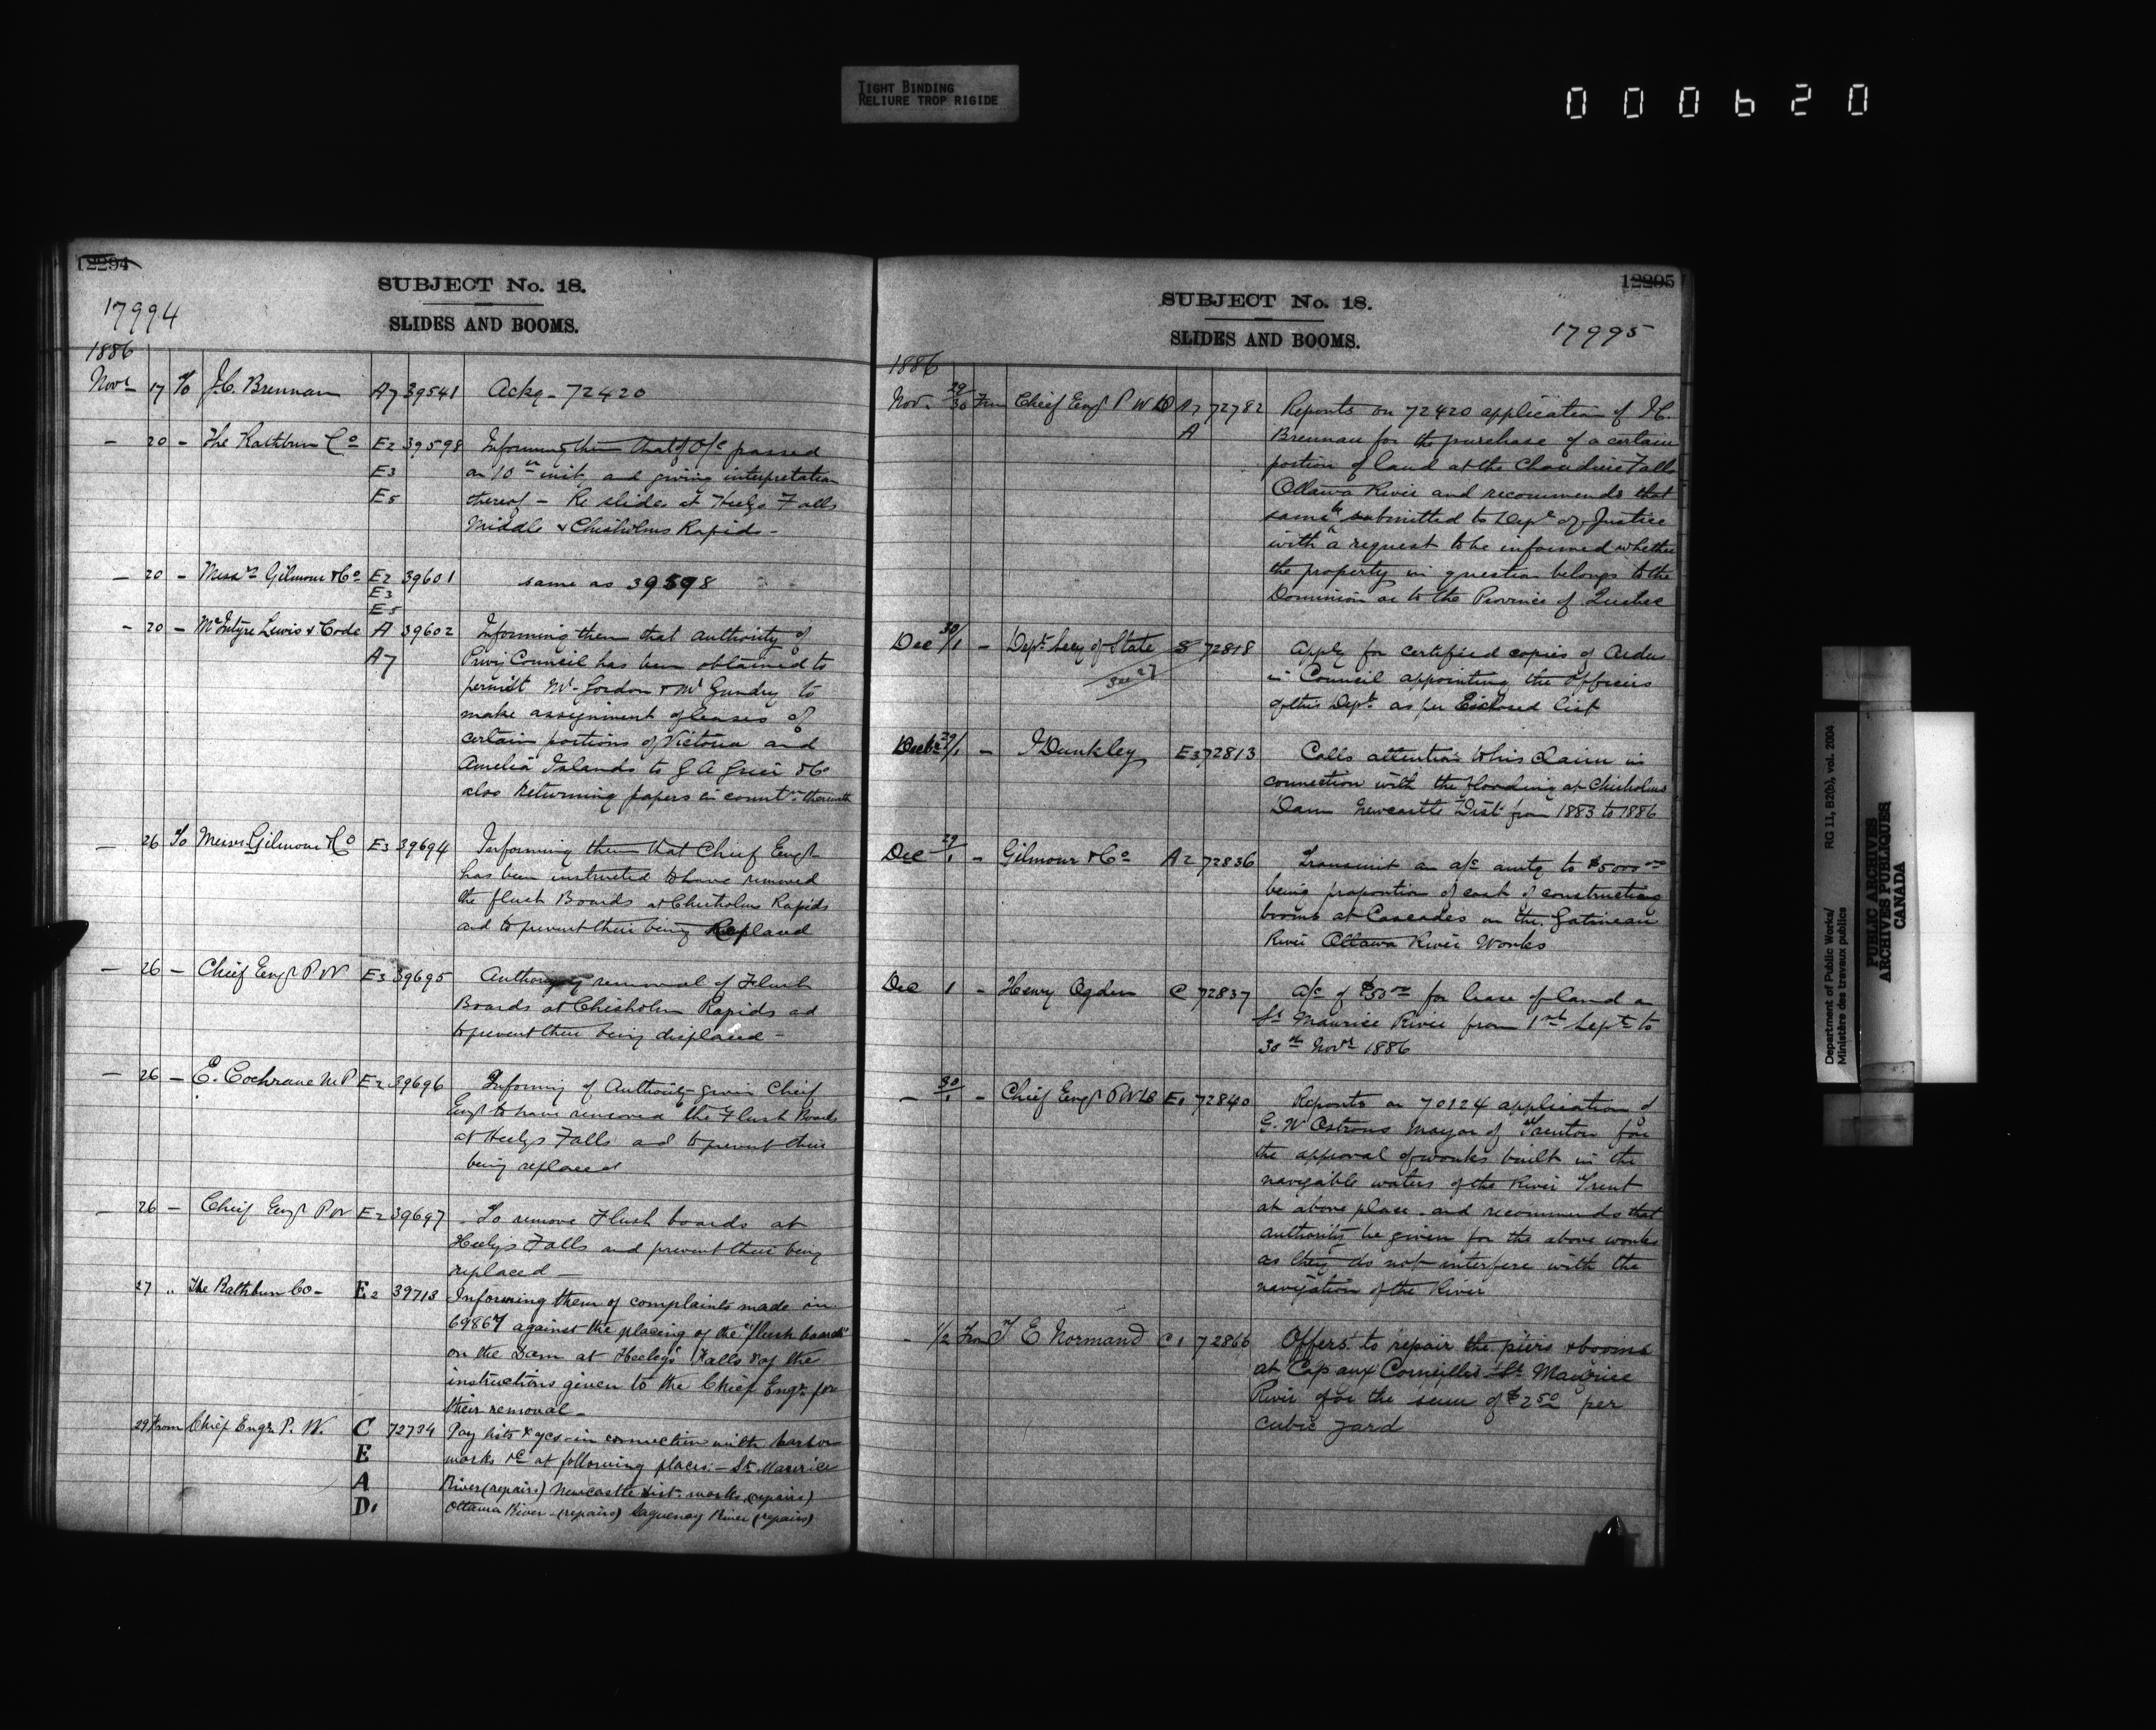 TIGHT BINDING
RELIURE TROP RIGIDE
000620
12294
SUBJECT No. 18.
17994
SLIDES AND BOOMS.
1886
Novr 17 To J.C. Brennan A7 39541 Ackg - 72420
- 20 - The Rathbun Co E2 39598 Informing them that of O/C passed
E3 on 10th inst, and giving interpretation
E5 thereof - Re slides at Heelys Falls
Middle & Chisholms Rapids -
- 20 - Messrs Gilmour & Co E2 39601 same as 39598
E3
E5
- 20 - McIntyre Lewis & Code A 39602 Informing them that authority of
A7 Privy Council has been obtained to
permit Mr Gordon & Mr Gundry to
make assignment of leases of
certain portions of Victoria and
Amelia Islands to G A Grier & Co
also returning papers in connt. therewith
- 26 To Messrs Gilmour & Co E3 39694 Informing them that Chief Engr
has been instructed to have removed
the flush Boards at Chisholms Rapids
and to prevent their being Replaced
- 26 - Chief Engr P W E3 39695 Authorizing removal of Flush
Boards at Chisholm Rapids ad
to prevent their being displaced -
- 26 - E. Cochrane M P E2 39696 Informing of Authority given Chief
Engr to have removed the Flush Boards
at Heelys Falls and to prevent their
being replaced
- 26 - Chief Engr P W E2 39697 - To remove Flush boards at
Heelys Falls and prevent their being
replaced -
27 " The Rathbun Co - E2 39713 Informing them of complaints made in
69867 against the placing of the "flush boards"
on the Dam at Heeley's Falls & of the
instructions given to the Chief Engr. for
their removal -
29 From Chief Engr. P. W. C 72734 Pay lists & in connection with harbor
E works &c at following places: - St. Maurice
A River (repairs) Newcastle Dist. works (repairs)
D1 Ottawa River - (repairs) Saguenay River (repairs)
12295
SUBJECT No. 18.
17995
SLIDES AND BOOMS.
1886
Nov. 29/30 From Chief Engr P W D A7 72782 Reports on 72420 application of J C.
A Brennan for the purchase of a certain
portion of land at the Chaudiere Falls
Ottawa River and recommends that
same be submitted to Dept of Justice
with a request to be informed whether
the property in question belongs to the
Dominion or to the Province of Quebec
Dec 30/1 - Dept. Secy of State S 72818 Apply for certified copies of Order
See 27 in Council appointing the Officers
of this Dept. as per Enclosed list
Decbr 29/1 - J Dunkley E3 72813 Calls attention to his claim in
connection with the flooding at Chisholms
Dam Newcastle Dist from 1883 to 1886
Dec 29/1 - Gilmour & Co A2 72836 Transmit an a/c amtg to $5000.00
being proportion of cost of constructing
booms at Cascades on the Gatineau
River Ottawa River Works
Dec 1 - Henry Ogden C 72837 a/c of $50.00 for lease of land on
St Maurice River from 1st Sept to
30th Novr 1886
- 30/1 - Chief Engr P W D E1 72840 Reports on 70124 application of
G. W Ostrom Mayor of Trenton for
the approval of works built in the
navigable waters of the River Trent
at above place and recommends that
authority be given for the above works
as they do not interfere with the
navigation of the River
- 1/2 From T E Normand C1 72866 Offers to repair the piers & booms
at Cap aux Corneilles St. Maurice
River for the sum of $2.50 per
cubic yard
Department of Public Works/
Ministère des travaux publics
RG 11, B2(b), vol. 2004
PUBLIC ARCHIVES
ARCHIVES PUBLIQUES
CANADA